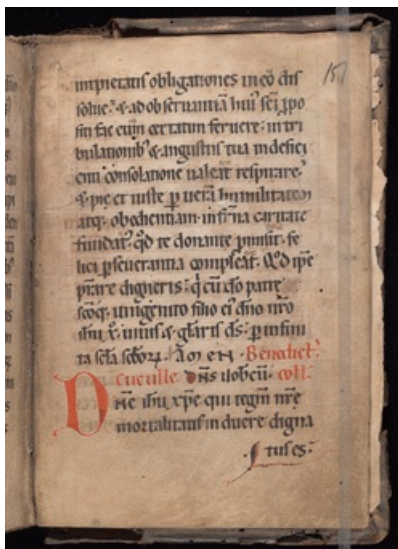 151
impietatis obligationes in eo dis
solue. & ad obseruantiā huī sci ꝓpo
siti fac eum certatim feruere. in tri
bulationib; & angustiis tua indefici
enti consolatione ualeat respirare.
& pie et iuste ꝑ uerā humilitatem
atq; obedientiam. in fr̄na caritate
fundat᷒. qd te donante ꝓmisit. fe
lici ꝑseuerantia compleat. Qd ipse
p̄stare digneris. q̄ cū do patre
scoq; unigenito filio ei᷒ dn̄o nr̄o
ihū x̄. uiuis & gl̄aris d̄s. ꝑ infini
ta scl̄a sclōꝝ. Amen. Benedict᷒.
Cuculle. dn̄s uobcū. coll᷒.
Dn̄e ihū xp̄e qui tegm̄ nr̄e
mortalitatis induere digna
tus es.